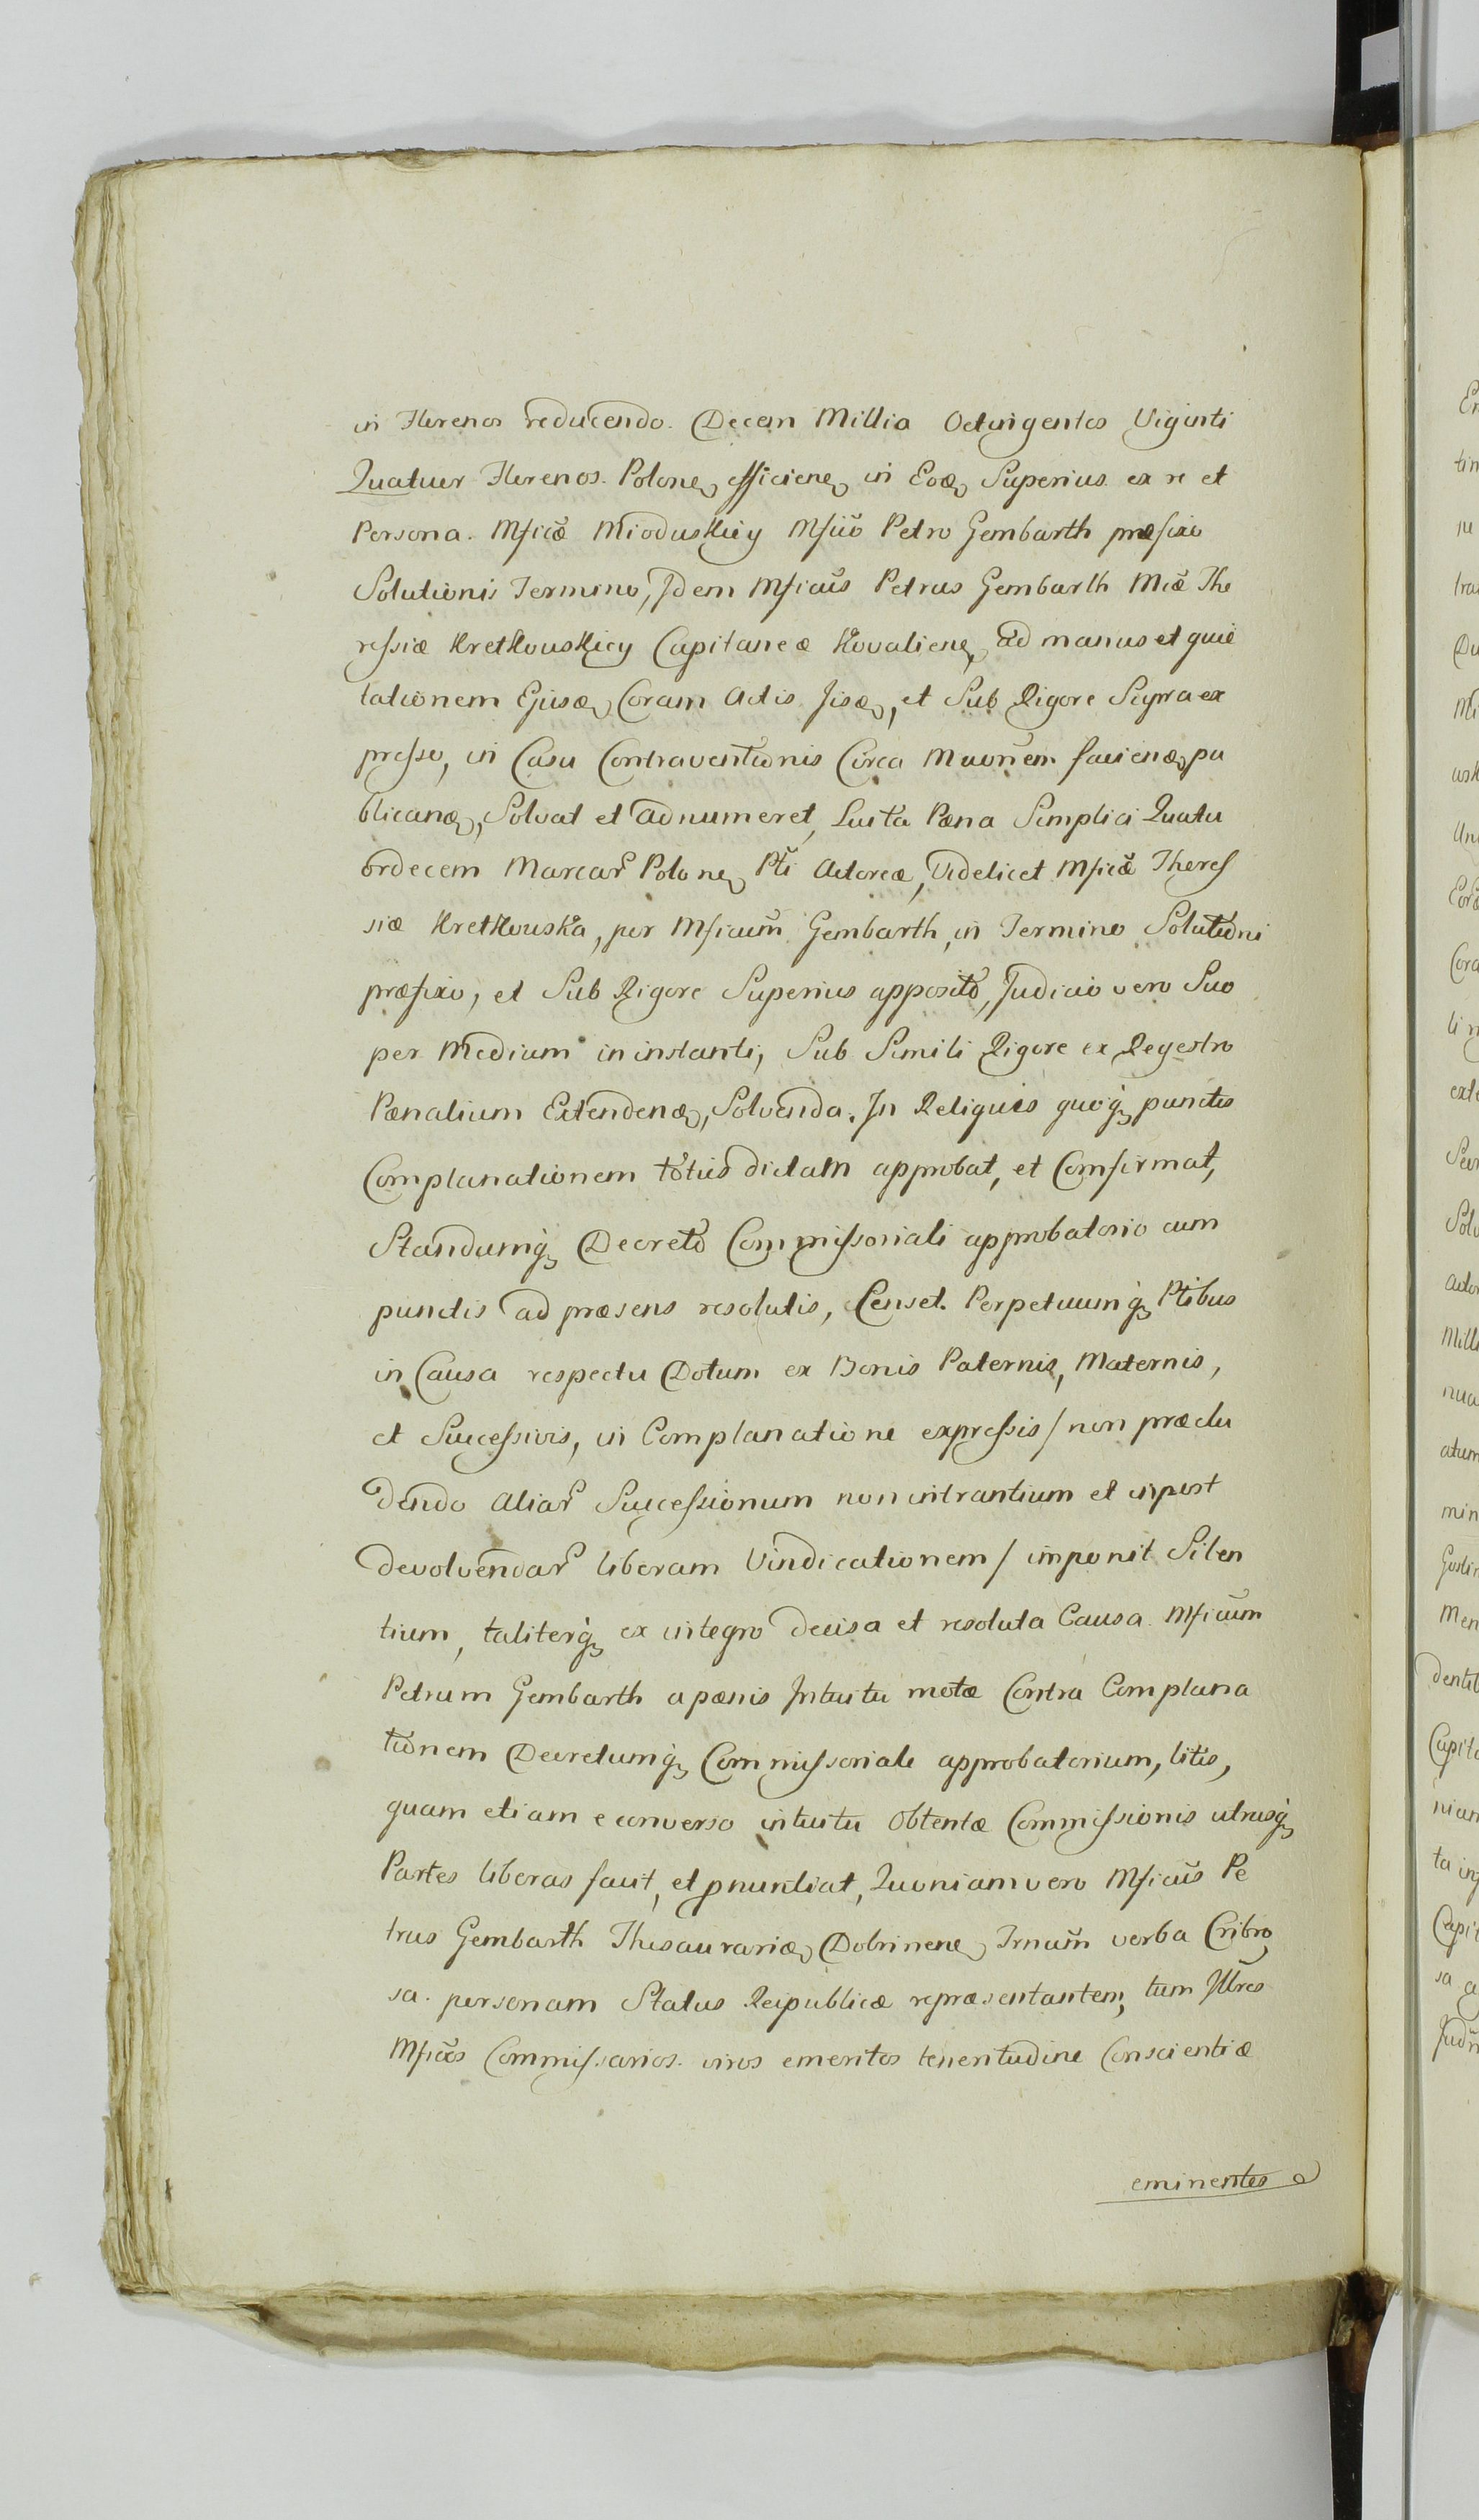 in Florenos reducendo. Decem Millia Octingentos Viginti
Quatuor Florenos. Polone, efficiene, in Eod, Superius ex re et
Persona. Mficæ Mioduskiey Mfico Petro Gembarth præfixo
Solutionis Termino, Idem Mficus Petrus Gembarth Mcæ The
ressiæ Kretkouskiey Capitaneæ Kovaliene, ad manus et quie
tationem Ejusd, Coram Actis Iisd, et Sub Rigore Supra ex
presso, in Casu Contraventionis Circa Muonem faciend, pu
blicand, Solvat et adnumeret, Luita Pæna Simplici Quatu
ordecem Marcar Polone, Pti Actoreæ, Videlicet Mficæ Theres
siæ Kretkouska, per Mficum Gembarth, in Termino Solutioni
præfixo, et Sub Rigore Superius apposito, Judicio vero Suo
per Medium in instanti, Sub Simili Rigore ex Regestro
Pænalium Extendend, Solvenda. In Reliquis quoq punctis
Complanationem toties dictam approbat, et Comfirmat,
Standumq Decreto Commissoriali approbatorio cum
punctis ad præsens resolutis, Censet. Perpetuumq Ptibus
in Causa respectu Dotum ex Bonis Paternis, Maternis,
et Successivis, in Complanatione expressis / non præclu
dendo aliar Successionum non intrantium et inpost
devolvendar liberam Vindicationem / imponit Silen
tium, taliterq ex integro decisa et resoluta Causa. Mficum
Petrum Gembarth a pænis Intuitu motæ Contra Complana
tionem Decretumq Commissoriale approbatorium, litis,
quam etiam e converso intuitu Obtentæ Commissionis utrasq
Partes liberas facit, et pnuntiat, Quoniam vero Mficus Pe
trus Gembarth Thesaurarid, Dobrinene, Irnum verba Cribro
sa. personam Status Reipublicæ repræsentantem, tum Illres
Mficos Commissarios. viros emeritos teneritudine Conscientiæ
eminentes